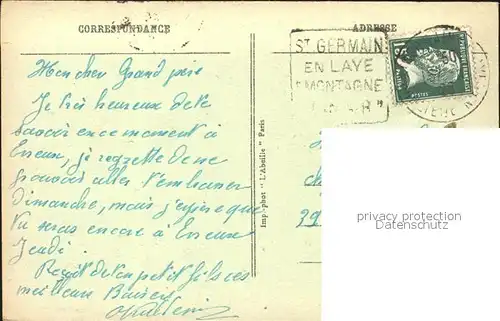 CORRESPONDANCE
ADRESSE
ST GERMAIN
EN LAYE
MONTAGNE
Mon cher Grand père
Je suis heureux de te
savoir en ce moment à
Evreux, je regrette de ne
pouvoir aller t'embrasser
dimanche, mais j'espère que
tu seras encore à Evreux
Jeudi.
Reçoit de ton petit fils ces
meilleurs Baisers
Imp.-phot "L'Abeille" Paris
39
privacy protection
Datenschutz